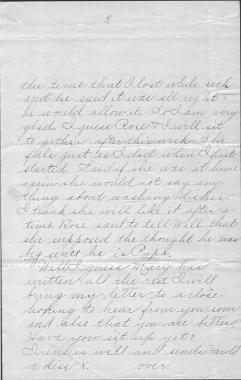 5
the time that I lost while sick
and he said it was all right
he would allow it. So I am very
glad. I guess Rose & I will sit
together after this week. She
feels just as I did when I first
started. I said if she was at home
again she would not say any
thing about washing dishes.
I think she will like it after a
time. Rose said to tell Will that
she supposed he thought he was
big since he is Papa.
Well I guess Mary has
written all the rest I will
bring my letter to a close
hoping to hear from you soon
and also that you are better
Have you sit up yet?
Irene is well and sends Harold
a kiss x. over.